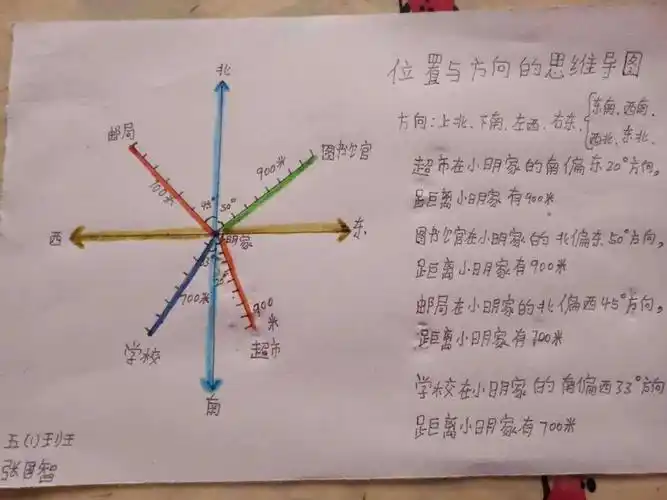 位置与方向的思维导图
方向:上北、下南、左西、右东、{东南、西南、
西北、东北、
超市在小明家的南偏东20°方向,
距距离小明家有900米
图书馆在小明家的北偏东50°方向,
距离小明家有900米
邮局在小明家的北偏西45°方向,
距离小明家有700米
学校在小明家的南偏西33°方向
距离小明家有700米
北
邮局
图书馆
700米
900米
45°
50°
西
东
小明家
700米
900
米
学校
超市
南
五(1)班